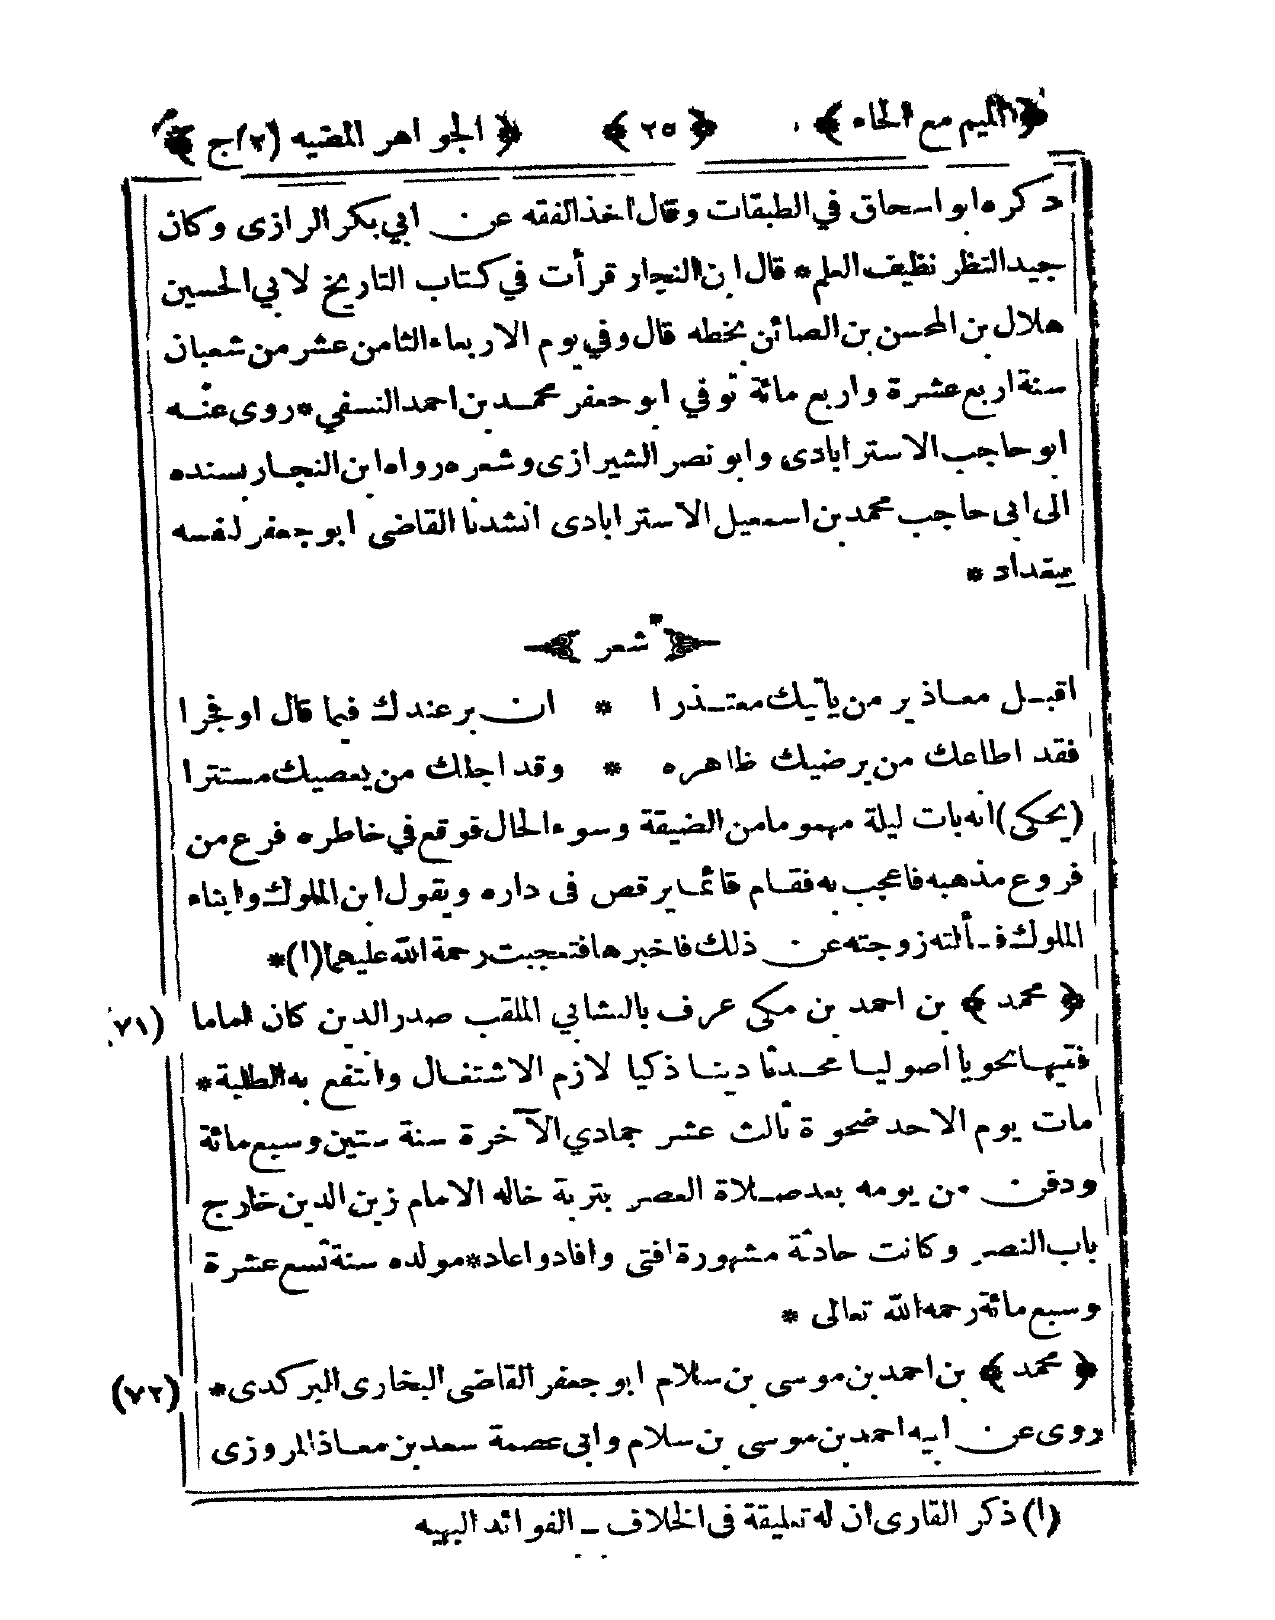 ﴿ الميم مع الحاء ﴾ ﴿ ٢٥ ﴾ ﴿ الجواهر المضيه (٢) ج ﴾
ذكره ابو اسحاق في الطبقات وقال اخذ الفقه عن ابي بكر الرازى وكان
جيد النظر نظيف العلم * قال ابن النجار قرأت في كتاب التاريخ لابي الحسين
هلال بن المحسن بن الصائن بخطه قال وفي يوم الاربعاء الثامن عشر من شعبان
سنة اربع عشرة واربع مائة توفي ابو جعفر محمد بن احمد النسفي * روى عنه
ابو حاجب الاسترابادى وابو نصر الشيرازى وشعره رواه ابن النجار بسنده
الى ابى حاجب محمد بن اسمعيل الاسترابادى انشدنا القاضى ابو جعفر لنفسه
ببغداد *
﴿ شعر ﴾
اقبل معاذير من يأتيك معتذرا * ان برعندك فيما قال او فجرا
فقد اطاعك من يرضيك ظاهره * وقد اجلك من يعصيك مستترا
(يحكى) انه بات ليلة مهموما من الضيقة وسوء الحال فوقع في خاطره فرع من
فروع مذهبه فاعجب به فقام قائما يرقص فى داره ويقول ابن الملوك وابناء
الملوك فسألته زوجته عن ذلك فاخبرها فتعجبت رحمة الله عليهما (١) *
﴿ محمد ﴾ بن احمد بن مكى عرف بالنشابي الملقب صدر الدين كان اماما (٧١)
فقيها نحويا اصوليا محدثا دينا ذكيا لازم الاشتغال وانتفع به الطلبة *
مات يوم الاحد ضحوة ثالث عشر جمادي الآخرة سنة ستين وسبع مائة
ودفن من يومه بعد صلاة العصر بتربة خاله الامام زين الدين خارج
باب النصر وكانت حادثة مشهورة افتى وافاد واعاد * مولده سنة تسع عشرة
وسبع مائة رحمه الله تعالى *
﴿ محمد ﴾ بن احمد بن موسى بن سلام ابو جعفر القاضى البخارى البركدى * (٧٢)
روى عن ابيه احمد بن موسى بن سلام وابى عصمة سعد بن معاذ المروزى
(١) ذكر القارى ان له تعليقة فى الخلاف ـ الفوائد البهيه